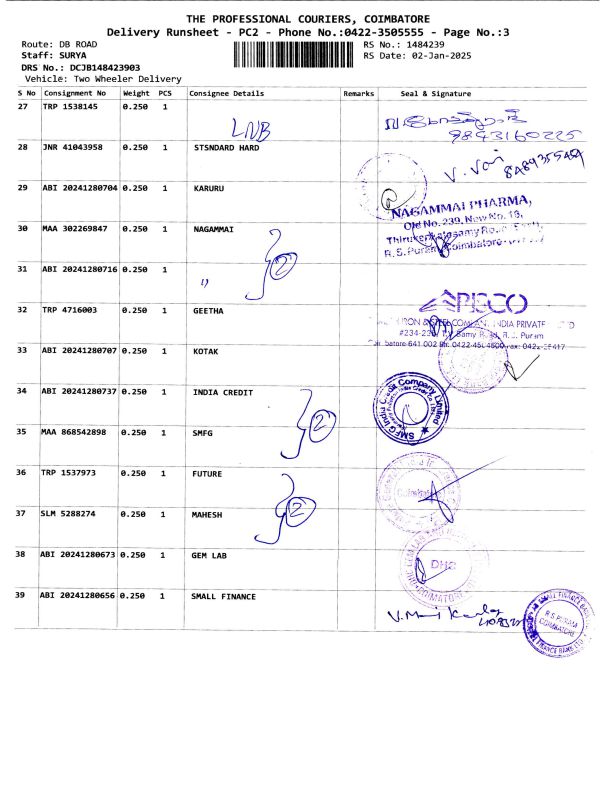 THE PROFESSIONAL COURIERS, COIMBATORE
Delivery Runsheet - PC2 - Phone No.:0422-3505555 - Page No.:3
Route: DB ROAD RS No.: 1484239
Staff: SURYA RS Date: 02-Jan-2025
DRS No.: DCJB148423903
Vehicle: Two Wheeler Delivery
S No Consignment No Weight PCS Consignee Details Remarks Seal & Signature
27 TRP 1538145 0.250 1
LNB
9843160225
28 JNR 41043958 0.250 1 STSNDARD HARD
29 ABI 20241280704 0.250 1 KARURU
NAGAMMAI PHARMA,
Old No. 239, New No. 18,
30 MAA 302269847 0.250 1 NAGAMMAI
R.S. Puram, Coimbatore
31 ABI 20241280716 0.250 1 2
32 TRP 4716003 0.250 1 GEETHA
INDIA PRIVATE
R.S. Puram
33 ABI 20241280707 0.250 1 KOTAK
34 ABI 20241280737 0.250 1 INDIA CREDIT
SMFG India Credit Company Limited
35 MAA 868542898 0.250 1 SMFG 2
36 TRP 1537973 0.250 1 FUTURE
37 SLM 5288274 0.250 1 MAHESH 2
38 ABI 20241280673 0.250 1 GEM LAB
COIMBATORE
39 ABI 20241280656 0.250 1 SMALL FINANCE
SMALL FINANCE BANK LTD
R.S. PURAM
COIMBATORE